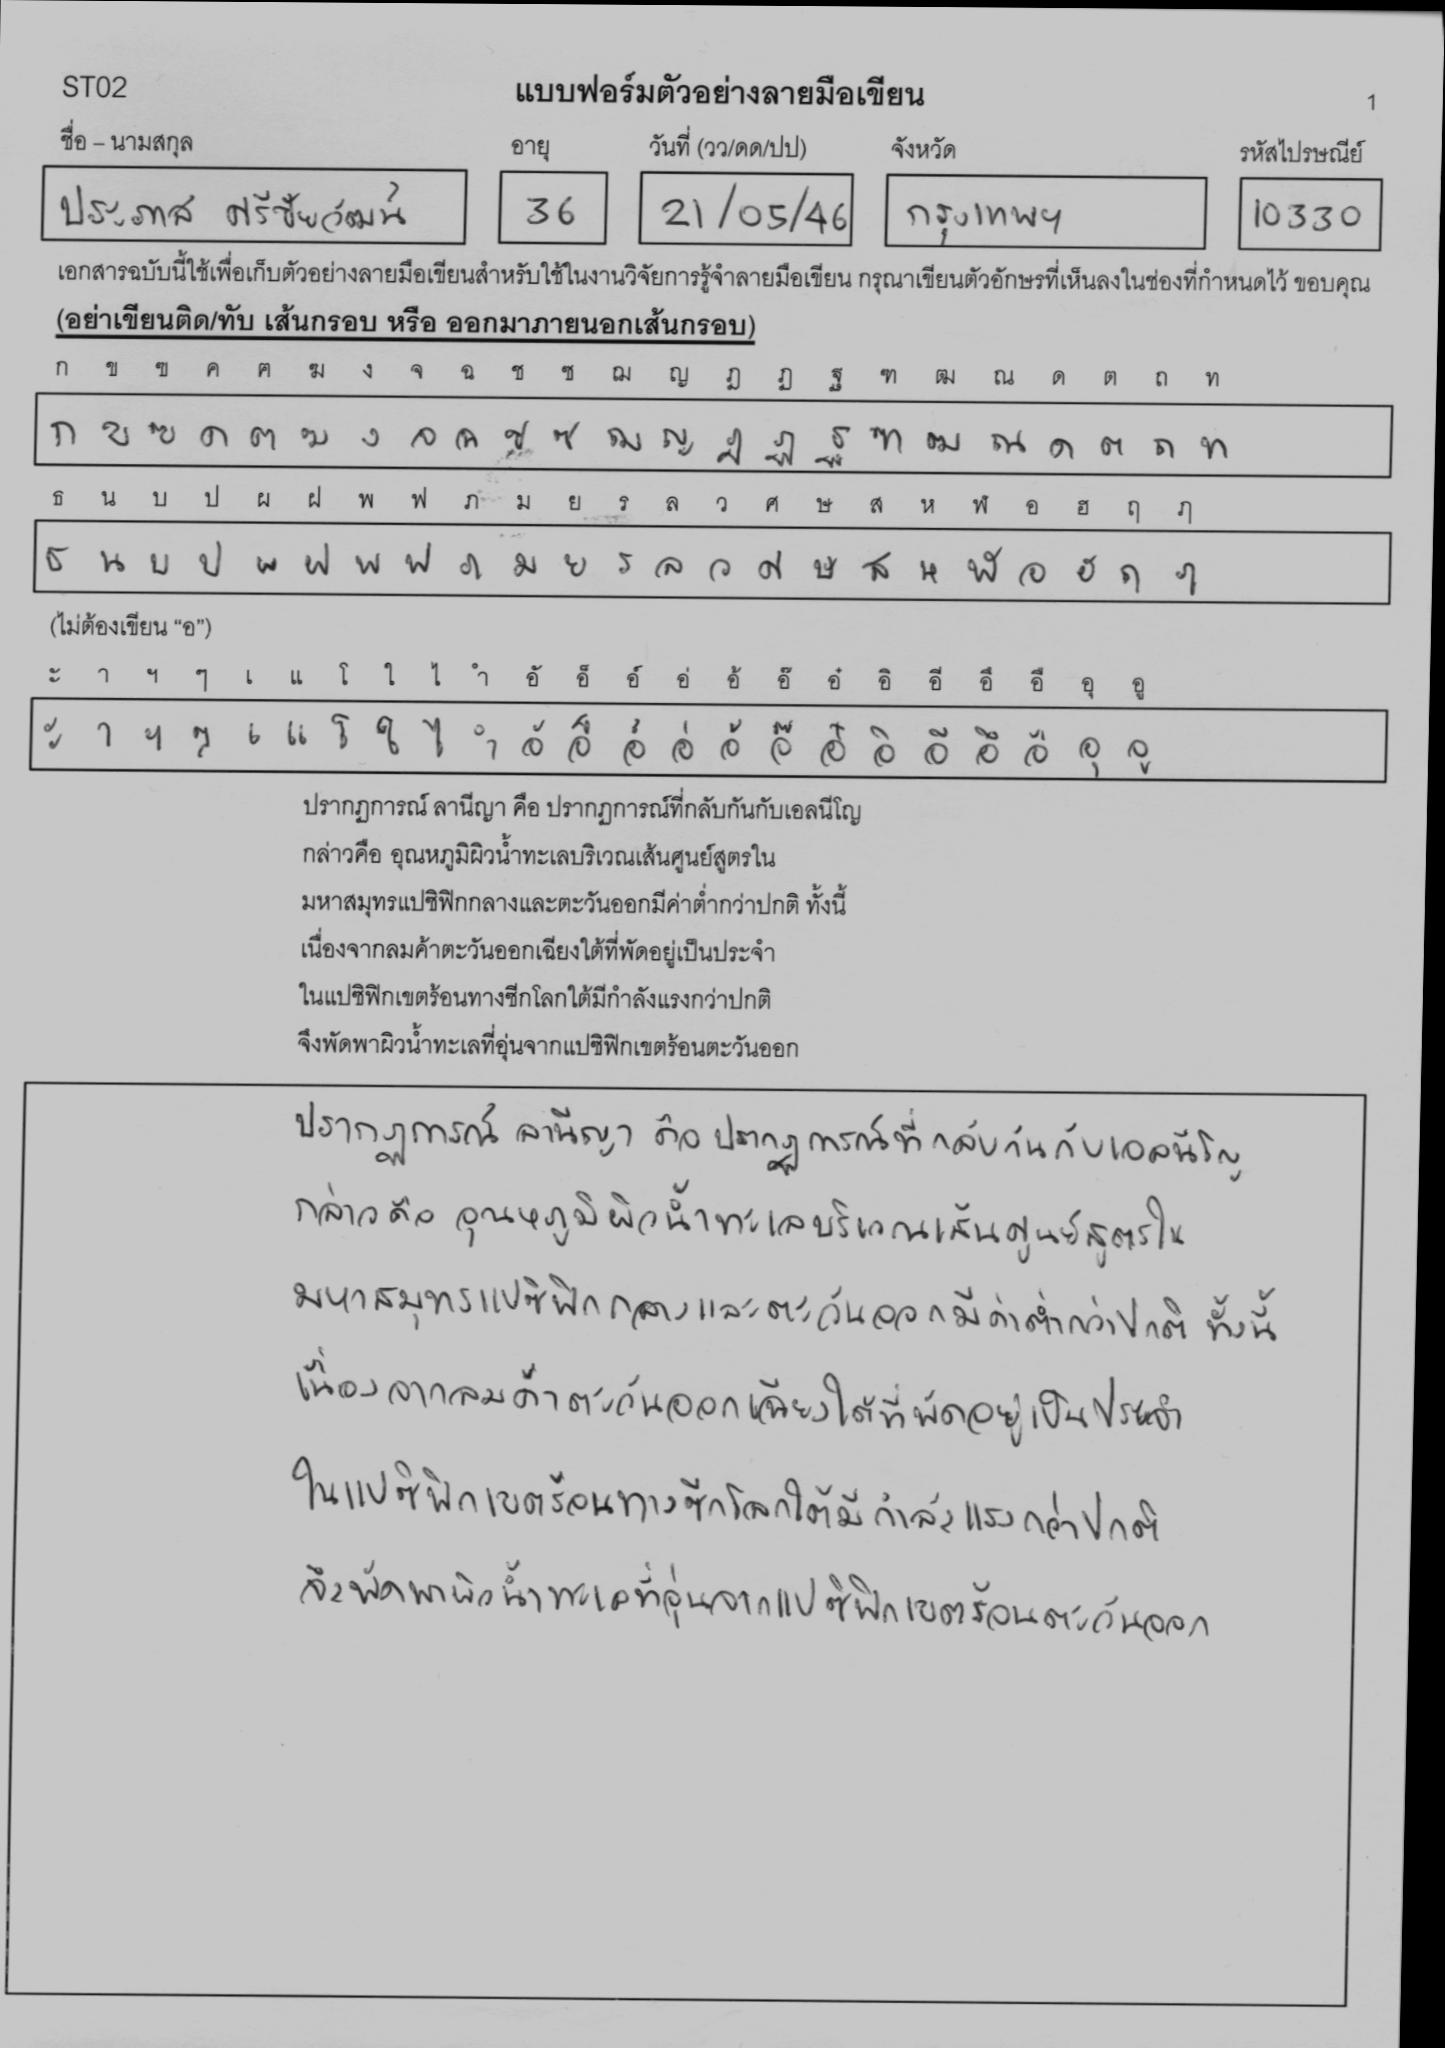 ST02
แบบฟอร์มตัวอย่างลายมือเขียน
1
ชื่อ – นามสกุล อายุ วันที่ (วว/ดด/ปป) จังหวัด รหัสไปรษณีย์
ประภาส ศรีชัยวัฒน์ 36 21/05/46 กรุงเทพฯ 10330
เอกสารฉบับนี้ใช้เพื่อเก็บตัวอย่างลายมือเขียนสำหรับใช้ในงานวิจัยการรู้จำลายมือเขียน กรุณาเขียนตัวอักษรที่เห็นลงในช่องที่กำหนดไว้ ขอบคุณ
(อย่าเขียนติด/ทับ เส้นกรอบ หรือ ออกมาภายนอกเส้นกรอบ)
ก ข ฃ ค ฅ ฆ ง จ ฉ ช ซ ฌ ญ ฎ ฏ ฐ ฑ ฒ ณ ด ต ถ ท
ก ข ฃ ค ฅ ฆ ง จ ฉ ช ซ ฌ ญ ฎ ฏ ฐ ฑ ฒ ณ ด ต ถ ท
ธ น บ ป ผ ฝ พ ฟ ภ ม ย ร ล ว ศ ษ ส ห ฬ อ ฮ ฤ ฦ
ธ น บ ป ผ ฝ พ ฟ ภ ม ย ร ล ว ศ ษ ส ห ฬ อ ฮ ฤ ฦ
(ไม่ต้องเขียน “อ”)
ะ า ฯ ๆ เ แ โ ใ ไ ำ อั อ็ อ์ อ่ อ้ อ๊ อ๋ อิ อี อึ อื อุ อู
ะ า ฯ ๆ เ แ โ ใ ไ ำ อั อ็ อ์ อ่ อ้ อ๊ อ๋ อิ อี อึ อื อุ อู
ปรากฏการณ์ ลานีญา คือ ปรากฏการณ์ที่กลับกันกับเอลนีโญ
กล่าวคือ อุณหภูมิผิวน้ำทะเลบริเวณเส้นศูนย์สูตรใน
มหาสมุทรแปซิฟิกกลางและตะวันออกมีค่าต่ำกว่าปกติ ทั้งนี้
เนื่องจากลมค้าตะวันออกเฉียงใต้ที่พัดอยู่เป็นประจำ
ในแปซิฟิกเขตร้อนทางซีกโลกใต้มีกำลังแรงกว่าปกติ
จึงพัดพาผิวน้ำทะเลที่อุ่นจากแปซิฟิกเขตร้อนตะวันออก
ปรากฏการณ์ ลานีญา คือ ปรากฏการณ์ที่กลับกันกับเอลนีโญ
กล่าวคือ อุณหภูมิผิวน้ำทะเลบริเวณเส้นศูนย์สูตรใน
มหาสมุทรแปซิฟิกกลางและตะวันออกมีค่าต่ำกว่าปกติ ทั้งนี้
เนื่องจากลมค้าตะวันออกเฉียงใต้ที่พัดอยู่เป็นประจำ
ในแปซิฟิกเขตร้อนทางซีกโลกใต้มีกำลังแรงกว่าปกติ
จึงพัดพาผิวน้ำทะเลที่อุ่นจากแปซิฟิกเขตร้อนตะวันออก